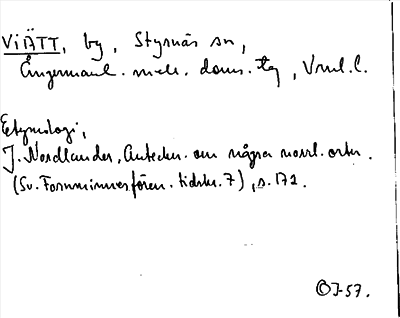 VIÄTT, by, Styrnäs sn,
Ångermanl. mell. doms. tg, Vnrl. l.
Etymologi,
J. Nordlander, Anteckn. om några norrl. ortn.
(Sv. Fornminnesfören. tidskr. 7), s. 172.
OJ-57.